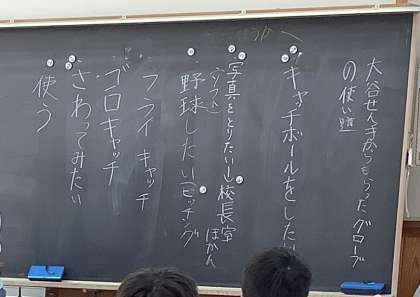 大谷せん手からもらったグローブ
の使い道
・キャッチボールをしたい
・写真をとりたい→校長室
ほかん
(ソフト)
・野球したい(ピッチング
・フライキャッチ
・ゴロキャッチ
・さわってみたい
使う